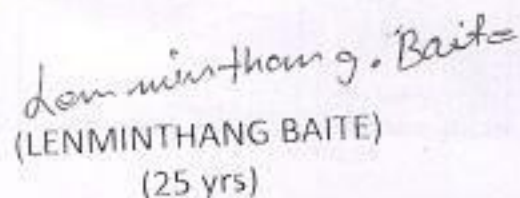 Lenminthang. Baite
(LENMINTHANG BAITE)
(25 yrs)